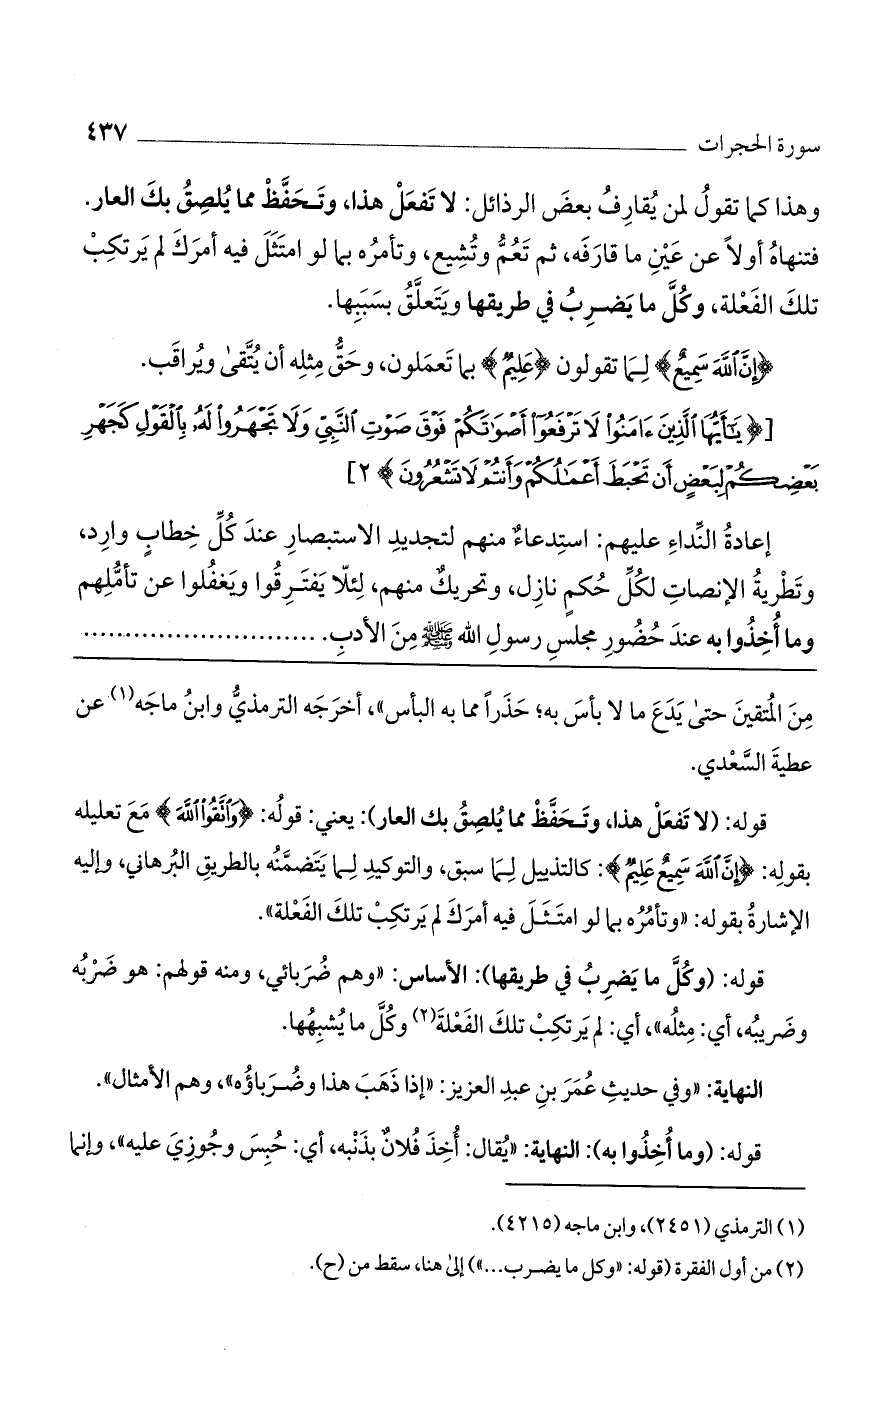 سورة الحجرات ٤٣٧
وهذا كما تقولُ لمن يُقارِفُ بعضَ الرذائل: لا تَفعَلْ هذا، وتَـحَفَّظْ مما يُلصِقُ بكَ العار.
فتنهاهُ أولاً عن عَيْنِ ما قارَفَه، ثم تَعُمُّ وتُشِيع، وتأمرُه بما لو امتَثَلَ فيه أمرَكَ لم يَرتكِبْ
تلكَ الفَعْلة، وكُلَّ ما يَضـرِبُ في طريقها ويَتَعلَّقُ بسَبَبِها.
﴿إِنَّ ٱللَّهَ سَمِيعٌ﴾ لِـمَا تقولون ﴿عَلِيمٌ﴾ بما تَعمَلون، وحَقُّ مِثلِه أن يُتَّقىٰ ويُراقَب.
[﴿يَـٰٓأَيُّهَا ٱلَّذِينَ ءَامَنُوا۟ لَا تَرْفَعُوٓا۟ أَصْوَٰتَكُمْ فَوْقَ صَوْتِ ٱلنَّبِىِّ وَلَا تَجْهَرُوا۟ لَهُۥ بِٱلْقَوْلِ كَجَهْرِ
بَعْضِكُمْ لِبَعْضٍ أَن تَحْبَطَ أَعْمَـٰلُكُمْ وَأَنتُمْ لَا تَشْعُرُونَ﴾ ٢]
إعادةُ النِّداءِ عليهم: استِدعاءٌ منهم لتجديدِ الاستبصارِ عندَ كُلِّ خِطابٍ وارِد،
وتَطْريةُ الإنصاتِ لكُلِّ حُكمٍ نازِل، وتحريكٌ منهم، لِئلّا يَفتَـرِقُوا ويَغفُلوا عن تأمُّلِهم
وما أُخِذُوا به عندَ حُضُورِ مجلسِ رسولِ الله ﷺ مِنَ الأدبِ. ............................
مِنَ المُتقينَ حتىٰ يَدَعَ ما لا بأسَ به؛ حَذَراً مما به البأس»، أخرَجَه الترمذيُّ وابنُ ماجَه(١) عن
عطيةَ السَّعْدي.
قوله: (لا تَفعَلْ هذا، وتَـحَفَّظْ مما يُلصِقُ بك العار): يعني: قولُه: ﴿وَٱتَّقُوا۟ ٱللَّهَ﴾ مَعَ تعليله
بقولِه: ﴿إِنَّ ٱللَّهَ سَمِيعٌ عَلِيمٌ﴾: كالتذييل لِـمَا سبق، والتوكيدِ لِـما يَتَضمَّنُه بالطريقِ البُرهاني، وإليه
الإشارةُ بقوله: «وتأمُرُه بما لو امتَثَـلَ فيه أمرَكَ لم يَرتكِبْ تلكَ الفَعْلة».
قوله: (وكُلَّ ما يَضرِبُ في طريقها): الأساس: «وهم ضُرَبائي، ومنه قولهم: هو ضَرْبُه
وضَريبُه، أي: مِثلُه»، أي: لم يَرتكِبْ تلكَ الفَعْلةَ(٢) وكُلَّ ما يُشبِهُها.
النهاية: «وفي حديثِ عُمَرَ بنِ عبدِ العزيز: «إذا ذَهَبَ هذا وضُـرَباؤُه»، وهم الأمثال».
قوله: (وما أُخِذُوا به): النهاية: «يُقال: أُخِذَ فُلانٌ بذَنْبِه، أي: حُبِسَ وجُوزِيَ عليه»، وإنما
(١) الترمذي (٢٤٥١)، وابن ماجه (٤٢١٥).
(٢) من أول الفقرة (قوله: «وكل ما يضـرب...») إلىٰ هنا، سقط من (ح).